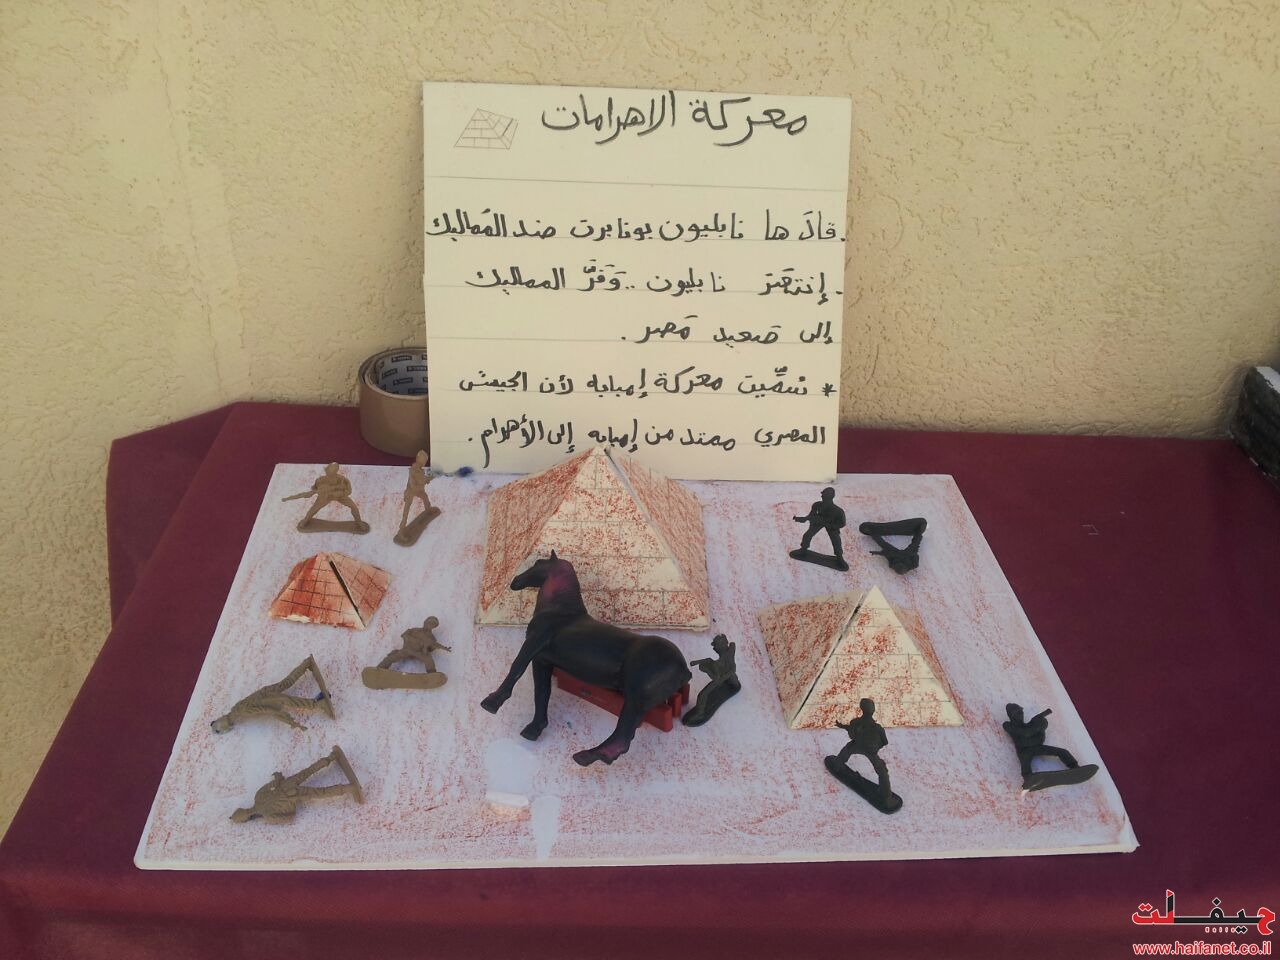 معركة الاهرامات
. قادَ ها نابليون بونابرت ضد المُماليك
. إنتصَرَ نابليون .. وَفَرَّ المماليك
إلى صَعيد مَصر .
* سُمِّيت معركة إمبابه لأن الجيش
المصري ممتد من إمبابه إلى الأهرام .
حيفانت
www.haifanet.co.il